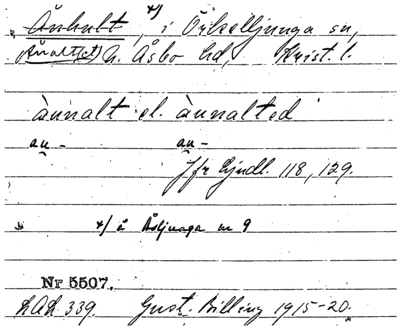 Änhult *), i Örkelljunga sn,
(Änalt(et)) N. Åsbo hd, Krist. l.
ànnalt el. ànnalted
an - an -
Jfr Ljudl. 118, 129.
*) å Åsljunga nr 9
Nr 5507.
LAL 339. Gust. Billing 1915-20.